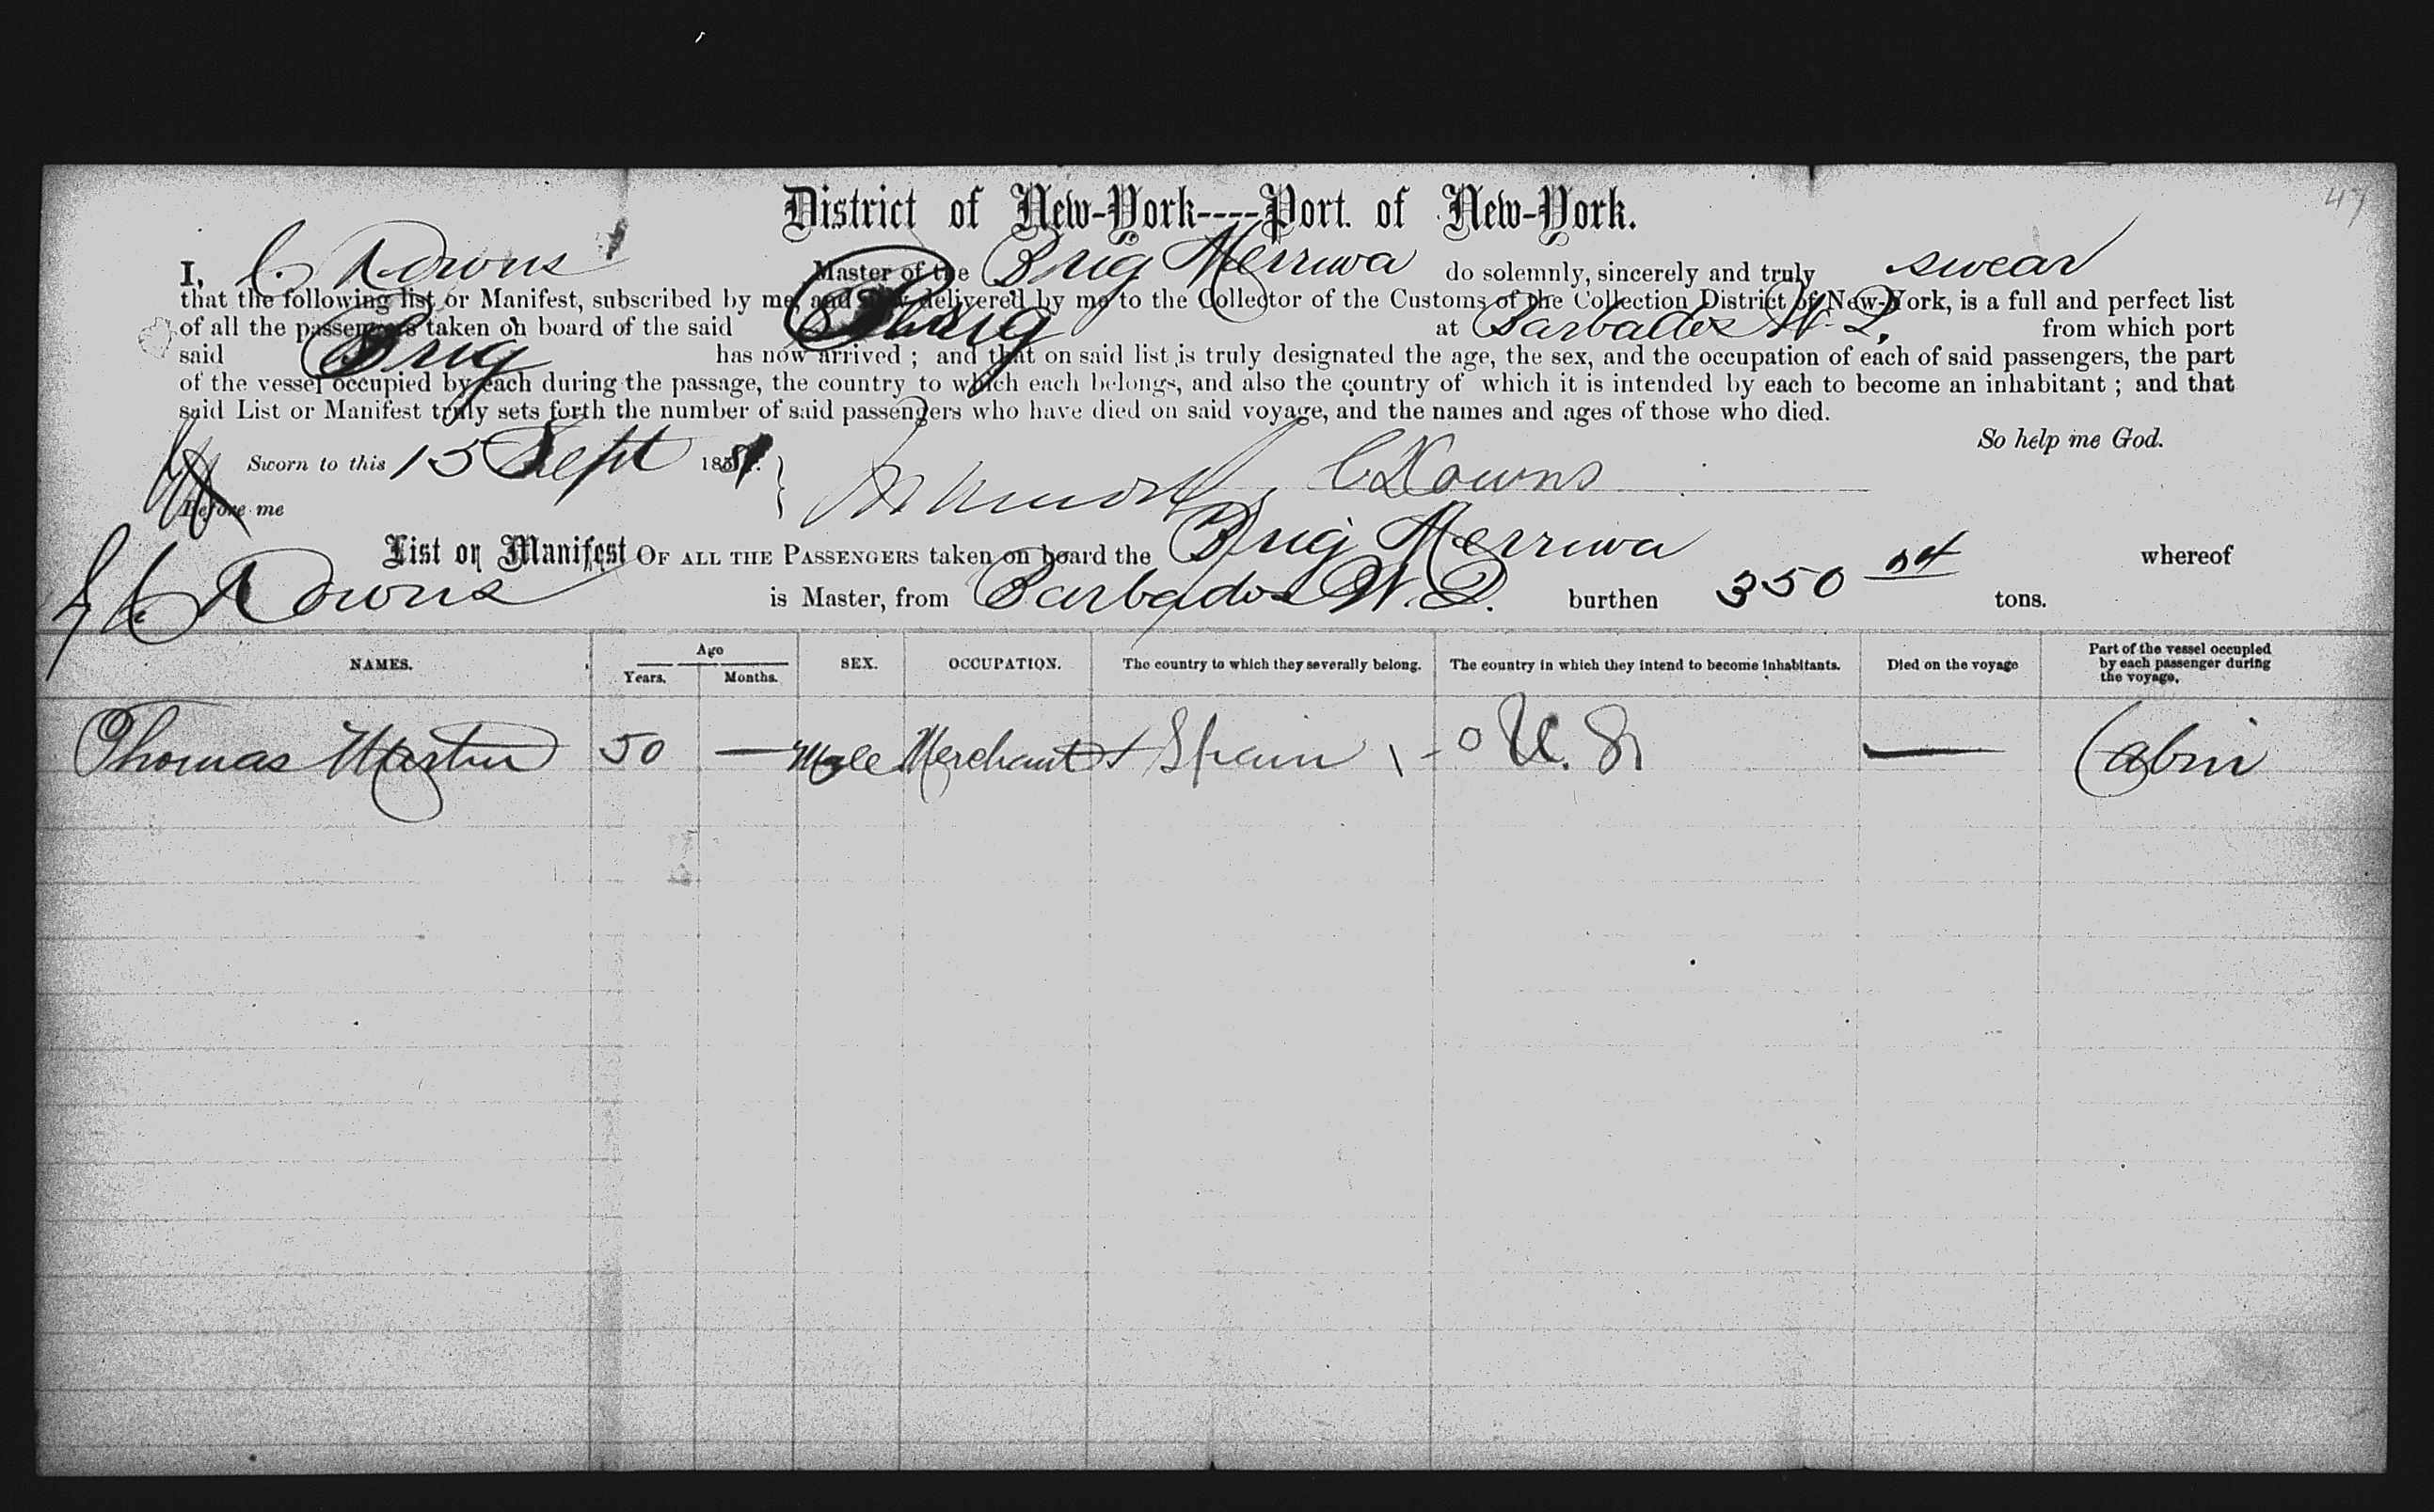 47
District of New-York----Port of New-York.
I, C. Downs Master of the Brig Merriwa do solemnly, sincerely and truly swear
that the following list or Manifest, subscribed by me, and now delivered by me to the Collector of the Customs of the Collection District of New-York, is a full and perfect list
of all the passengers taken on board of the said Brig at Barbados W. I. from which port
said Brig has now arrived ; and that on said list is truly designated the age, the sex, and the occupation of each of said passengers, the part
of the vessel occupied by each during the passage, the country to which each belongs, and also the country of which it is intended by each to become an inhabitant ; and that
said List or Manifest truly sets forth the number of said passengers who have died on said voyage, and the names and ages of those who died.
So help me God.
Sworn to this 15 Sept 18
C Downs
Before me
List or Manifest OF ALL THE PASSENGERS taken on board the Brig Merriwa whereof
C Downs is Master, from Barbados W. I. burthen 350 tons.
NAMES. Age Years. Months. SEX. OCCUPATION. The country to which they severally belong. The country in which they intend to become inhabitants. Died on the voyage Part of the vessel occupied by each passenger during the voyage.
Thomas Martin 50 — Male Merchant Spain U. S. — Cabin